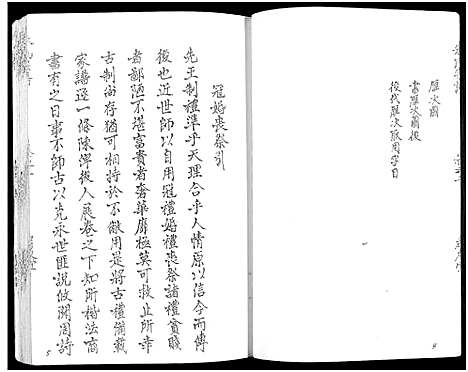 雁次前
雷雁次前後
後代雁次取用字目
8
冠婚喪祭引
先王制禮準乎天理合乎人情原以信今而傳
後也近世師以自用冠禮婚禮喪祭諸禮貧賤
者鄙陋不湛富貴者奢華靡極莫可救止所幸
古制尚存猶可相持於不敝用是將古禮備載
家譜逐一條陳俾後人展卷之下知所楷法商
書有之曰事不師古以克永世匪說攸聞周詩
5